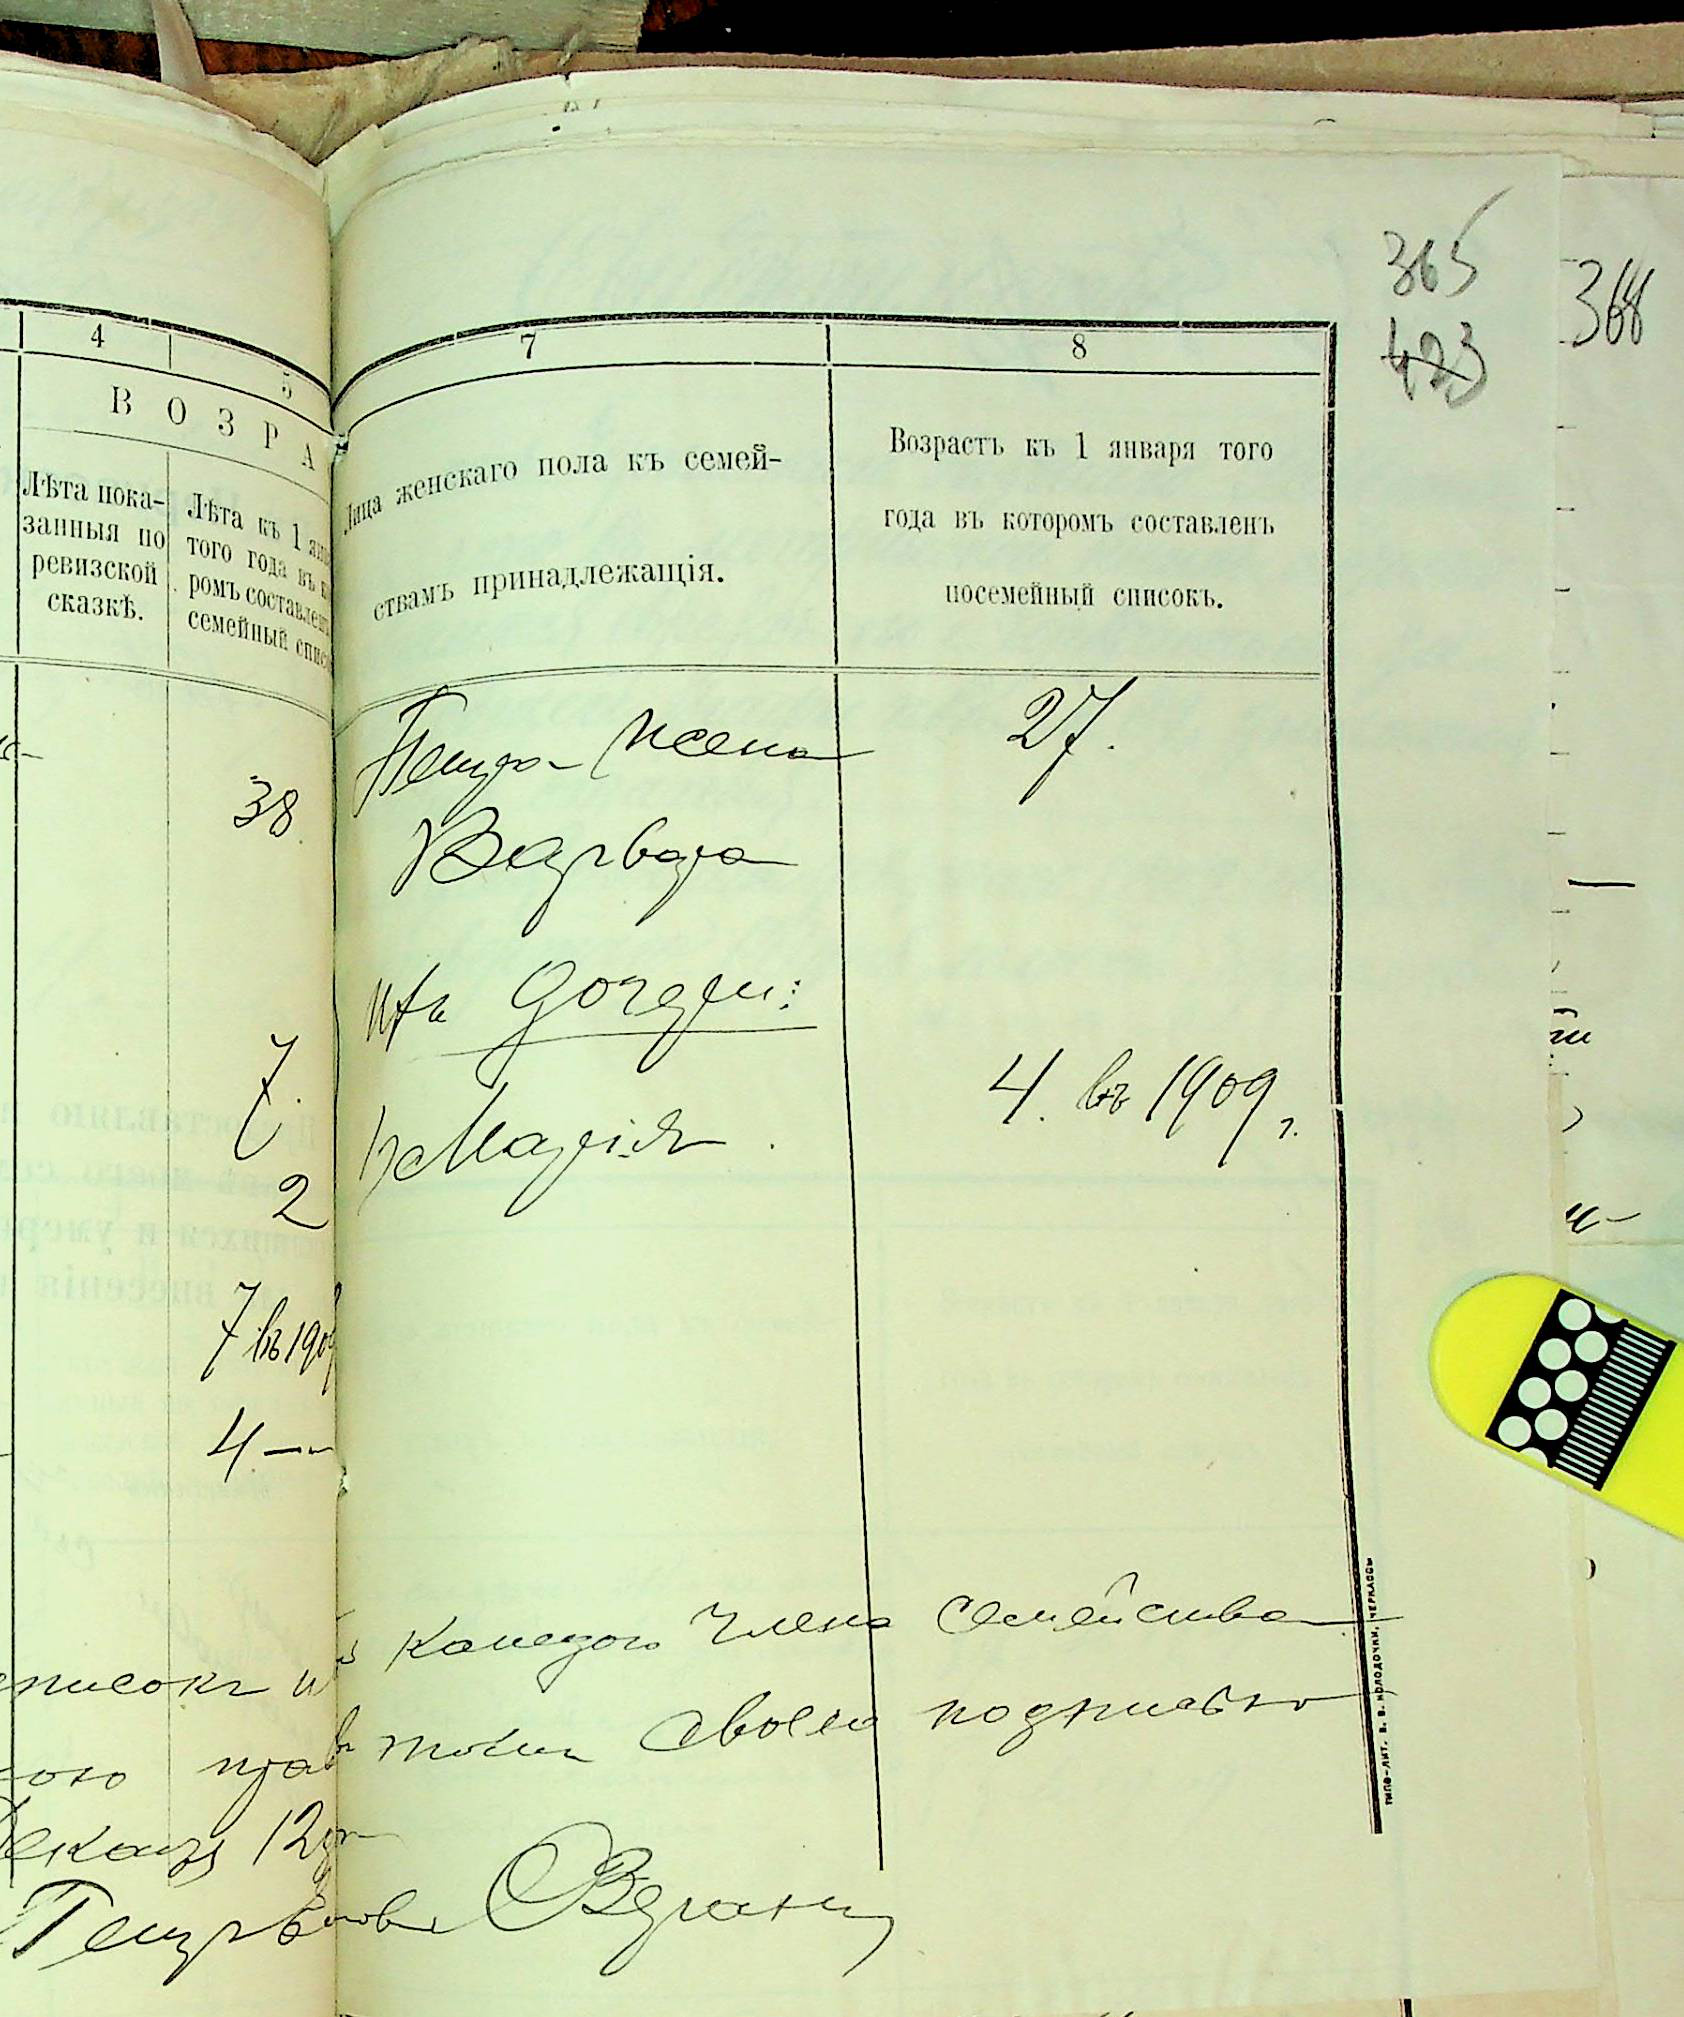 365
423
368
4
5
7
8
ВОЗРА
Лѣта пока-
занныя по
ревизской
сказкѣ.
Лѣта къ 1 янв
того года въ к
ромъ составленъ
семейный списо
Лица женскаго пола къ семей-
ствамъ принадлежащія.
Возрастъ къ 1 января того
года въ которомъ составленъ
посемейный списокъ.
38
7.
2
7 въ 1909
4 —
Петра жена
27.
Варвара
ихъ дочери:
1, Марія
4. въ 1909 г.
каждого члена семейства
списокъ
своею подписью
12
ТИПО-ЛИТ. В. В. КОЛОДОЧКИ, ЧЕРКАССЫ